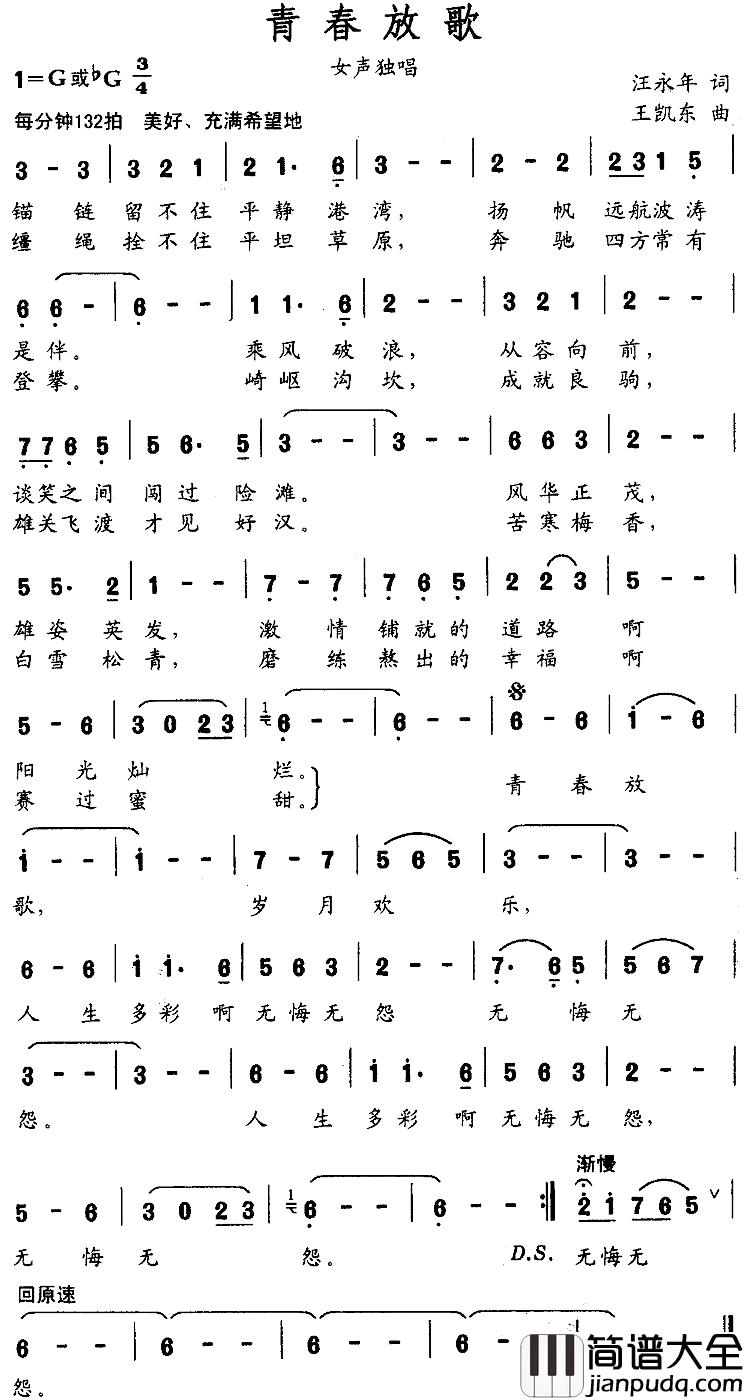 青春放歌
女声独唱
1=G或♭G 3/4
汪永年 词
王凯东 曲
每分钟132拍 美好、充满希望地
3 - 3 | 3 2 1 | 2 1· 6 | 3 - - | 2 - 2 | 2 3 1 5
锚链留不住平静港湾，扬帆远航波涛
缰绳拴不住平坦草原，奔驰四方常有
6 6 - | 6 - - | 1 1· 6 | 2 - - | 3 2 1 | 2 - - |
是伴。乘风破浪，从容向前，
登攀。崎岖沟坎，成就良驹，
7 7 6 5 | 5 6· 5 | 3 - - | 3 - - | 6 6 3 | 2 - - |
谈笑之间闯过险滩。风华正茂，
雄关飞渡才见好汉。苦寒梅香，
5 5· 2 | 1 - - | 7 - 7 | 7 6 5 | 2 2 3 | 5 - - |
雄姿英发，激情铺就的道路啊
白雪松青，磨练熬出的幸福啊
5 - 6 | 3 0 2 3 | 1 6 - - | 6 - - | 6 - 6 | i - 6 |
阳光灿烂。青春放
赛过蜜甜。
i - - | i - - | 7 - 7 | 5 6 5 | 3 - - | 3 - - |
歌，岁月欢乐，
6 - 6 | i i· 6 | 5 6 3 | 2 - - | 7· 6 5 | 5 6 7 |
人生多彩啊无悔无怨 无悔无
3 - - | 3 - - | 6 - 6 | i i· 6 | 5 6 3 | 2 - - |
怨。人生多彩啊无悔无怨，
渐慢
5 - 6 | 3 0 2 3 | 1 6 - - | 6 - - :‖ 2 i 7 6 5 | ∨
无悔无怨。D.S. 无悔无
回原速
6 - - | 6 - - | 6 - - | 6 - -
怨。
简谱大全
jianpudq.com